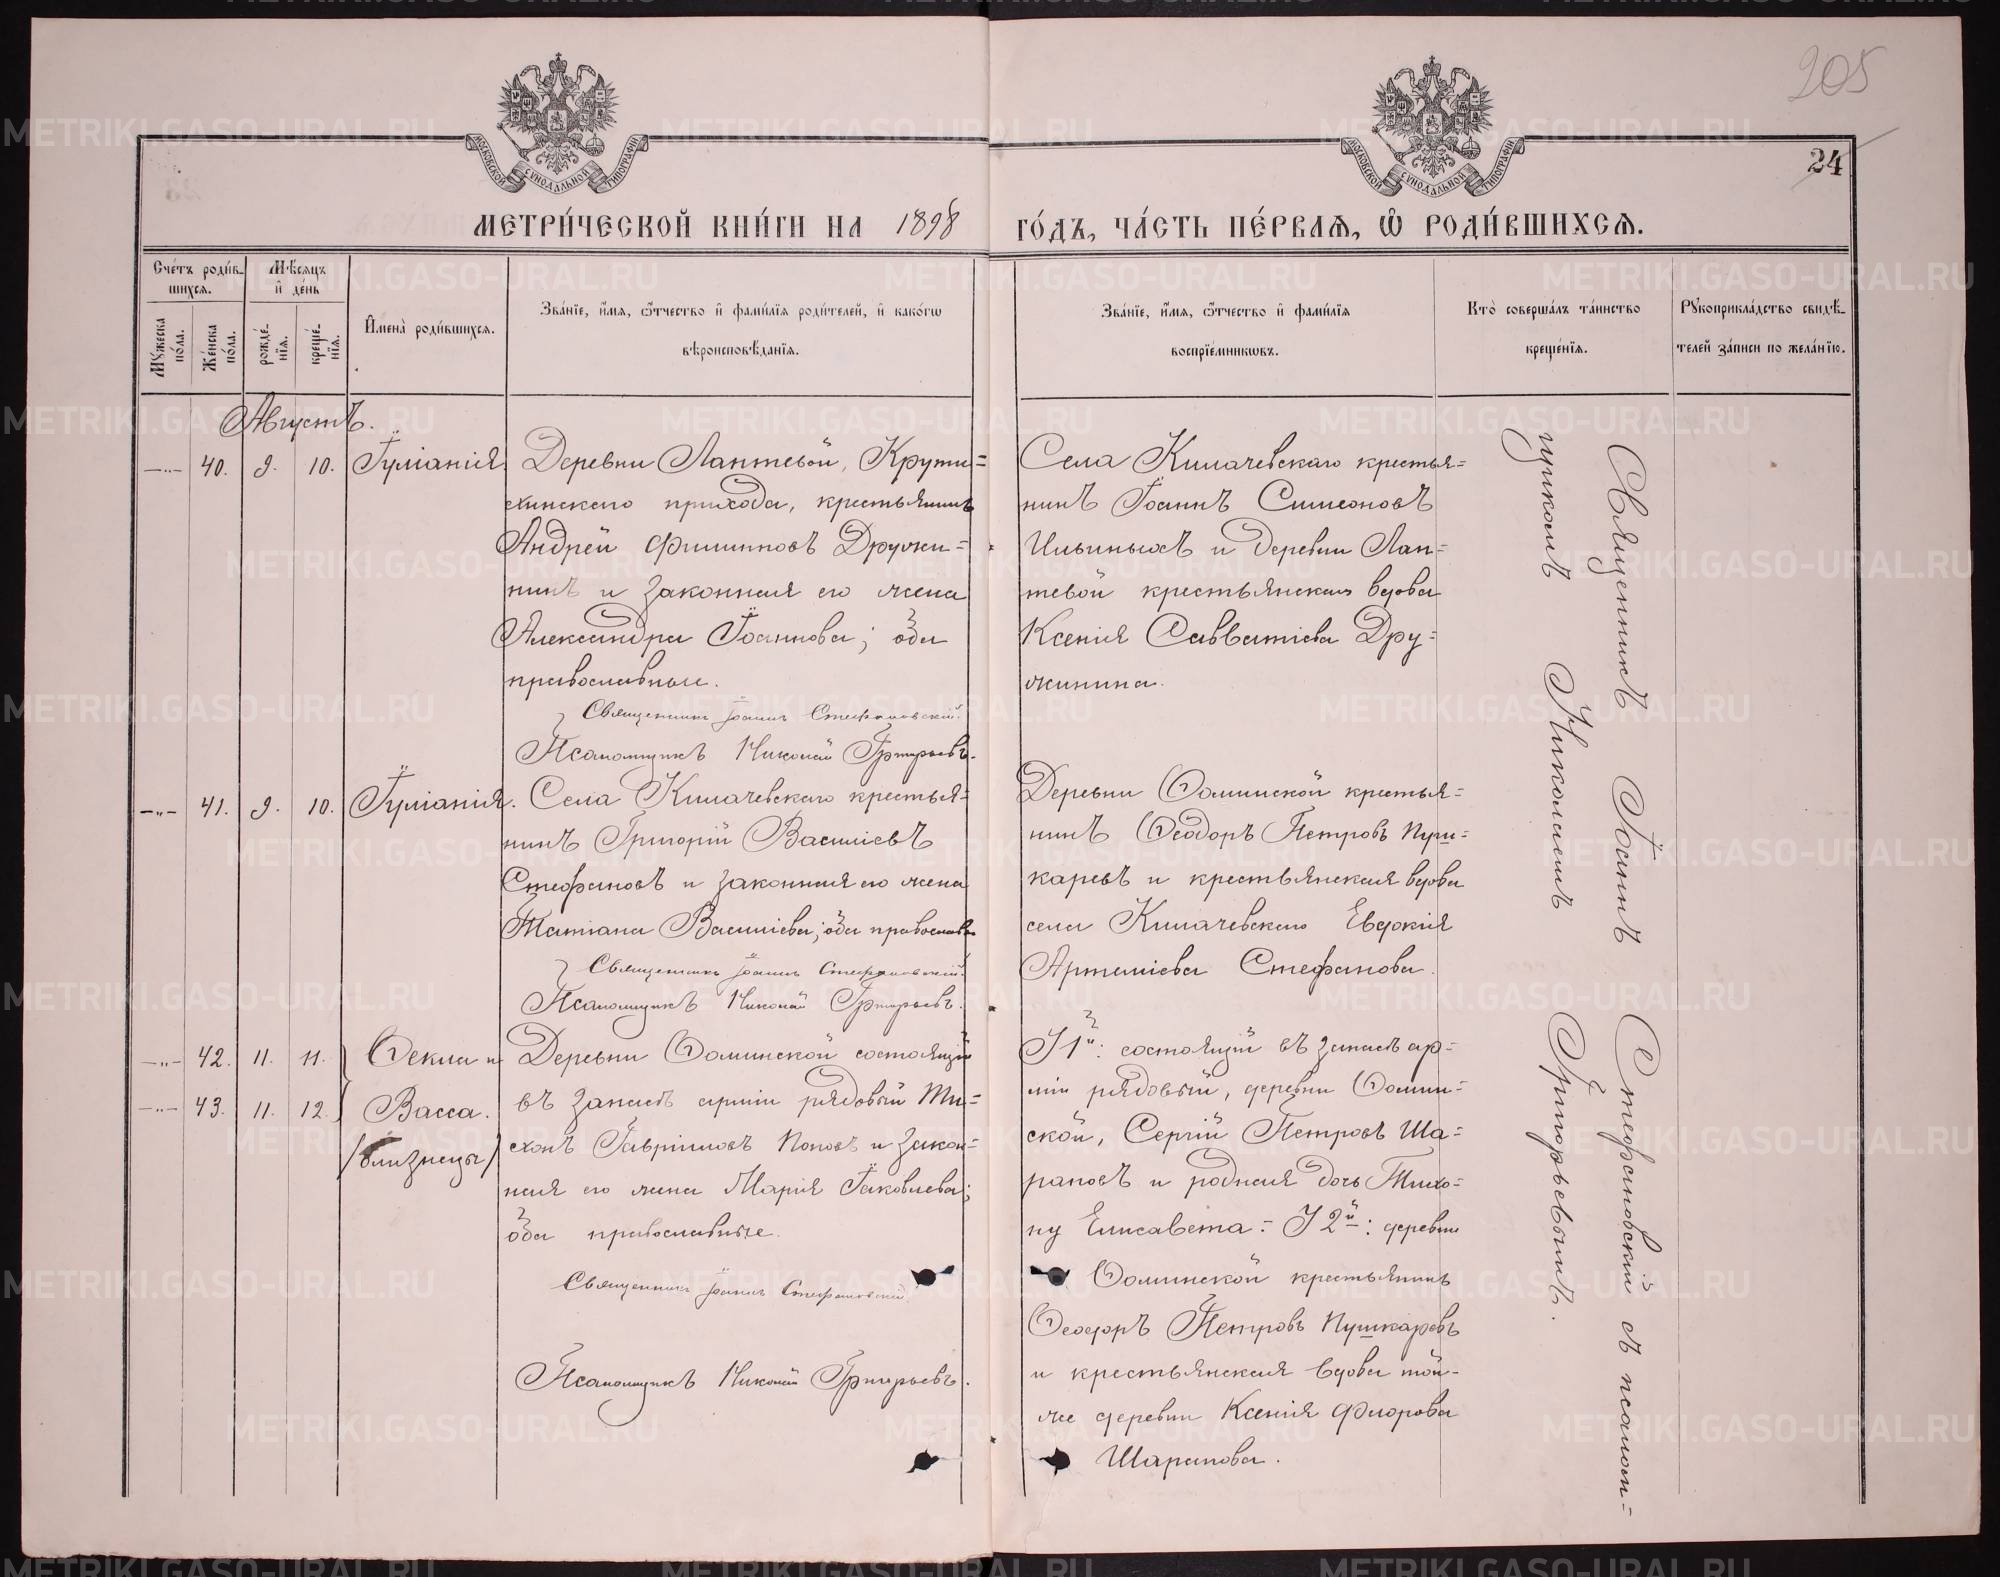 205
24
МОСКОВСКОЙ СѴНОДАЛЬНОЙ ТИПОГРАФІИ
МОСКОВСКОЙ СѴНОДАЛЬНОЙ ТИПОГРАФІИ
МЕТРИ́ЧЕСКОЙ КНИ́ГИ НА 1898 ГО́ДЪ, ЧА́СТЬ ПЕ́РВАѦ, Ѽ РОДИ́ВШИХСѦ.
Сче́тъ роди́в-
шихсѧ.
Мꙋ́жеска
по́ла.
Же́нска
по́ла.
Мѣ́сѧцъ
и҆ де́нь
рожде́-
нїѧ.
креще́-
нїѧ.
И҆мена̀ роди́вшихсѧ.
Зва́нїе, и҆́мѧ, ѻ҆́тчество и҆ фами́лїѧ роди́телей, и҆ како́гѡ
вѣроисповѣ́данїѧ.
Зва́нїе, и҆́мѧ, ѻ҆́тчество и҆ фами́лїѧ
воспрїе́мникѡвъ.
Кто̀ соверша́лъ та́инство
креще́нїѧ.
Рꙋкоприкла́дство свидѣ́-
телей за́писи по жела́нїю.
Августъ.
—„— 40. 9. 10. Іуліанія.
Деревни Лаптевой, Крути=
хинскаго прихода, крестьянинъ
Андрей Филипповъ Дружи=
нинъ и законная его жена
Александра Іоаннова; оба
православные.
Священникъ Іоаннъ Стефановскій.
Псаломщикъ Николай Григорьевъ.
Села Килачевскаго крестья=
нинъ Іоаннъ Симеоновъ
Ильиныхъ и деревни Лап=
тевой крестьянская вдова
Ксенія Савватіева Дру=
жинина.
—„— 41. 9. 10. Іуліанія.
Села Килачевскаго крестья=
нинъ Григорій Василіевъ
Стефановъ и законная его жена
Татіана Василіева; оба православн
Священникъ Іоаннъ Стефановскій.
Псаломщикъ Николай Григорьевъ.
Деревни Ѳоминской крестья=
нинъ Ѳеодоръ Петровъ Пуш=
каревъ и крестьянская вдова
села Килачевскаго Евдокія
Артеміева Стефанова.
—„— 42. 11. 11. Ѳекла и
—„— 43. 11. 12. Васса.
/близнецы/
Деревни Ѳоминской состоящій
въ запасѣ арміи рядовый Ти=
хонъ Гавріиловъ Поповъ и закон=
ная его жена Марія Іаковлева;
оба православные.
Священникъ Іоаннъ Стефановскій.
Псаломщикъ Николай Григорьевъ.
У 1й: состоящій въ запасѣ ар=
міи рядовый, деревни Ѳомин=
ской, Сергій Петровъ Ша=
раповъ и родная дочь Тихо=
ну Елисавета. У 2й: деревни
Ѳоминской крестьянинъ
Ѳеодоръ Петровъ Пушкаревъ
и крестьянская вдова той-
же деревни Ксенія Флорова
Шарапова.
Священникъ Іоаннъ Стефановскій съ псалом-
щикомъ Николаемъ Григорьевымъ.